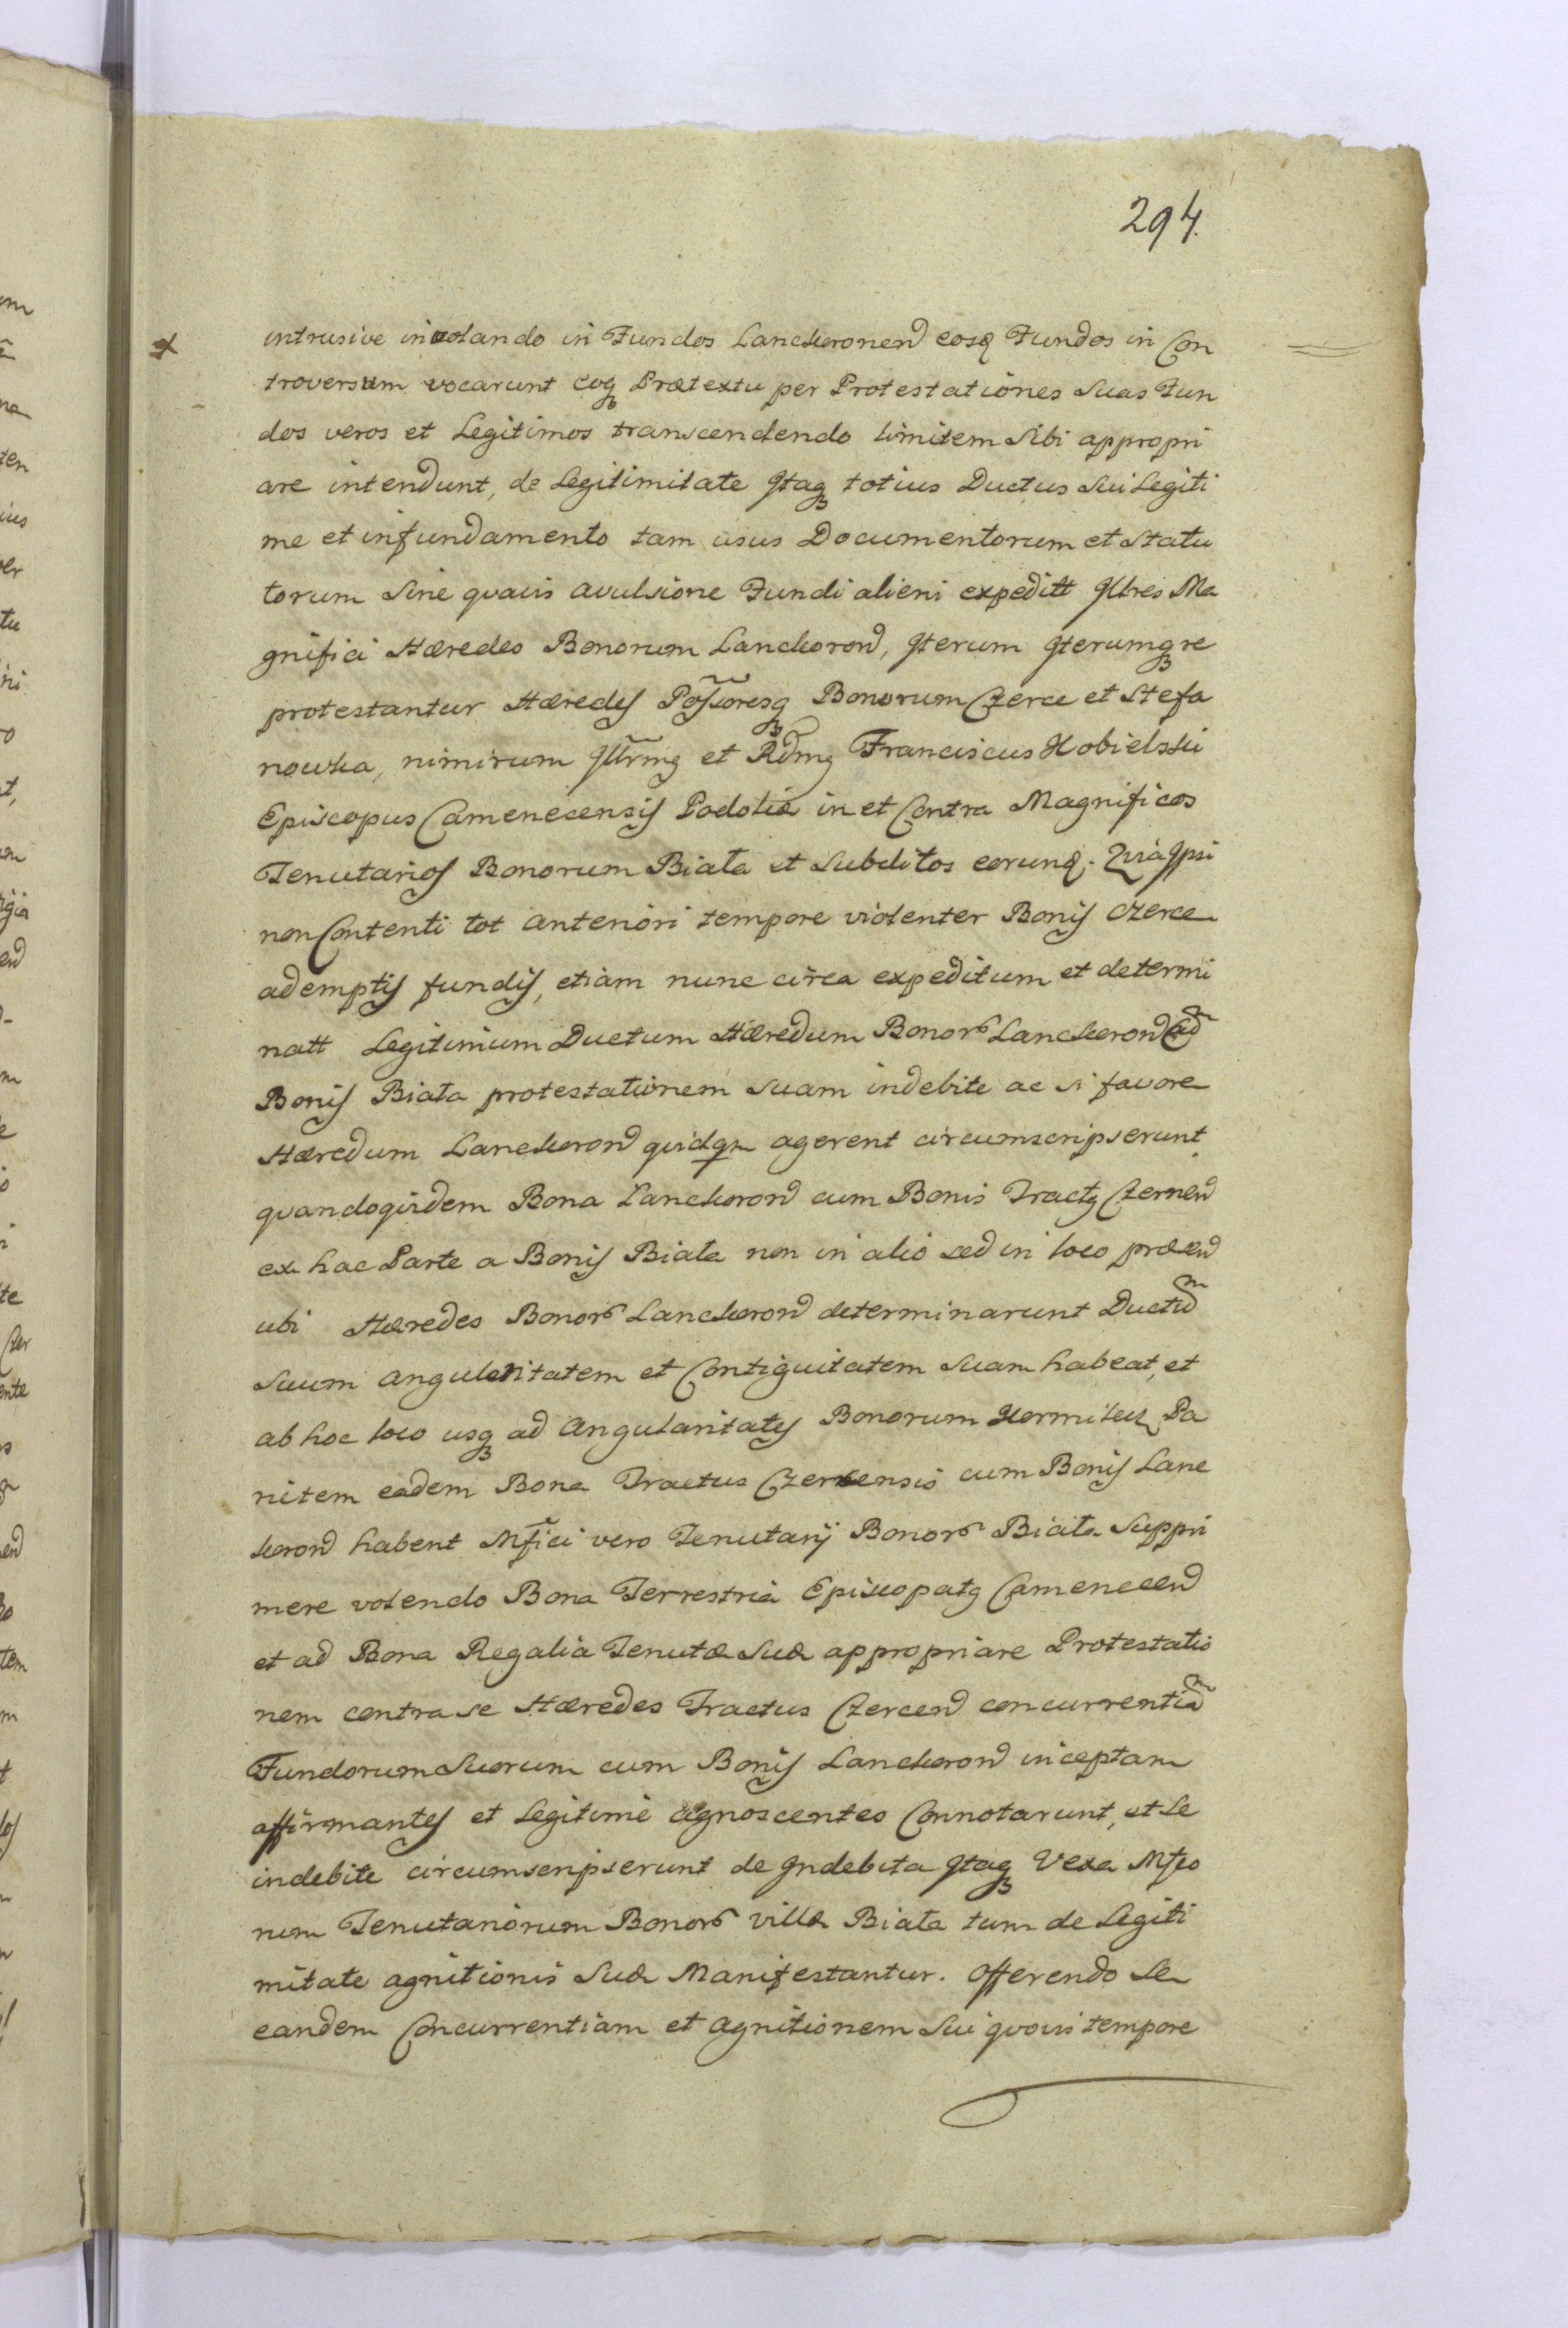 294.
intrusive involando in Fundos Lanckoronen eosq Fundos in Con
troversum vocarunt eoq Prætextu per Protestationes suas Fun
dos veros et Legitimos transcendendo limitem sibi appropri
are intendunt, de Legitimitate Itaq totius Ductus sui Legiti
me et in fundamento tam usus Documentorum et Statu
torum sine quavis avulsione Fundi alieni expeditt Illres Ma
gnifici Hæredes Bonorum Lanckoron, Iterum Iterumq re
protestantur Hæredes Possoresq Bonorum Czerce et Stefa
nowka, nimirum Illrmq et Rdmq Franciscus Kobielski
Episcopus Camenecensis Podoliæ in et Contra Magnificos
Tenutarios Bonorum Biała et Subditos eorund. Quia Ipsi
non Contenti tot anteriori tempore violenter Bonis Czerce
ademptis fundis, etiam nunc circa expeditum et determi
natt Legitimum Ductum Hæredum Bonor Lanckoron Cum
Bonis Biała protestationem suam indebite ac si favore
Hæredum Lanckoron quidqm agerent circumscripserunt
quandoquidem Bona Lanckoron cum Bonis Tractq Czernen
ex hac Parte a Bonis Biała non in alio sed in loco præsen
ubi Hæredes Bonor Lanckoron determinarunt Ductum
suum angularitatem et Contiguitatem suam habeat, et
ab hoc loco usq ad Angularitates Bonorum Kormilcza Pa
ritem eadem Bona Tractus Czercensis cum Bonis Lanc
koron habent Mfici vero Tenutarij Bonor Biała Suppri
mere volendo Bona Terrestria Episcopatq Camenecen
et ad Bona Regalia Tenutæ suæ appropriare Protestatio
nem contra se Hæredes Tractus Czercen concurrentiam
Fundorum suorum cum Bonis Lanckoron inceptam
affirmantes et Legitime agnoscentes Connotarunt, et se
indebite circumscripserunt de Indebita Itaq Vexa Mfco
rum Tenutariorum Bonor villæ Biała tum de Legiti
mitate agnitionis suæ Manifestantur. Offerendo se
eandem Concurrentiam et agnitionem sui quovis tempore